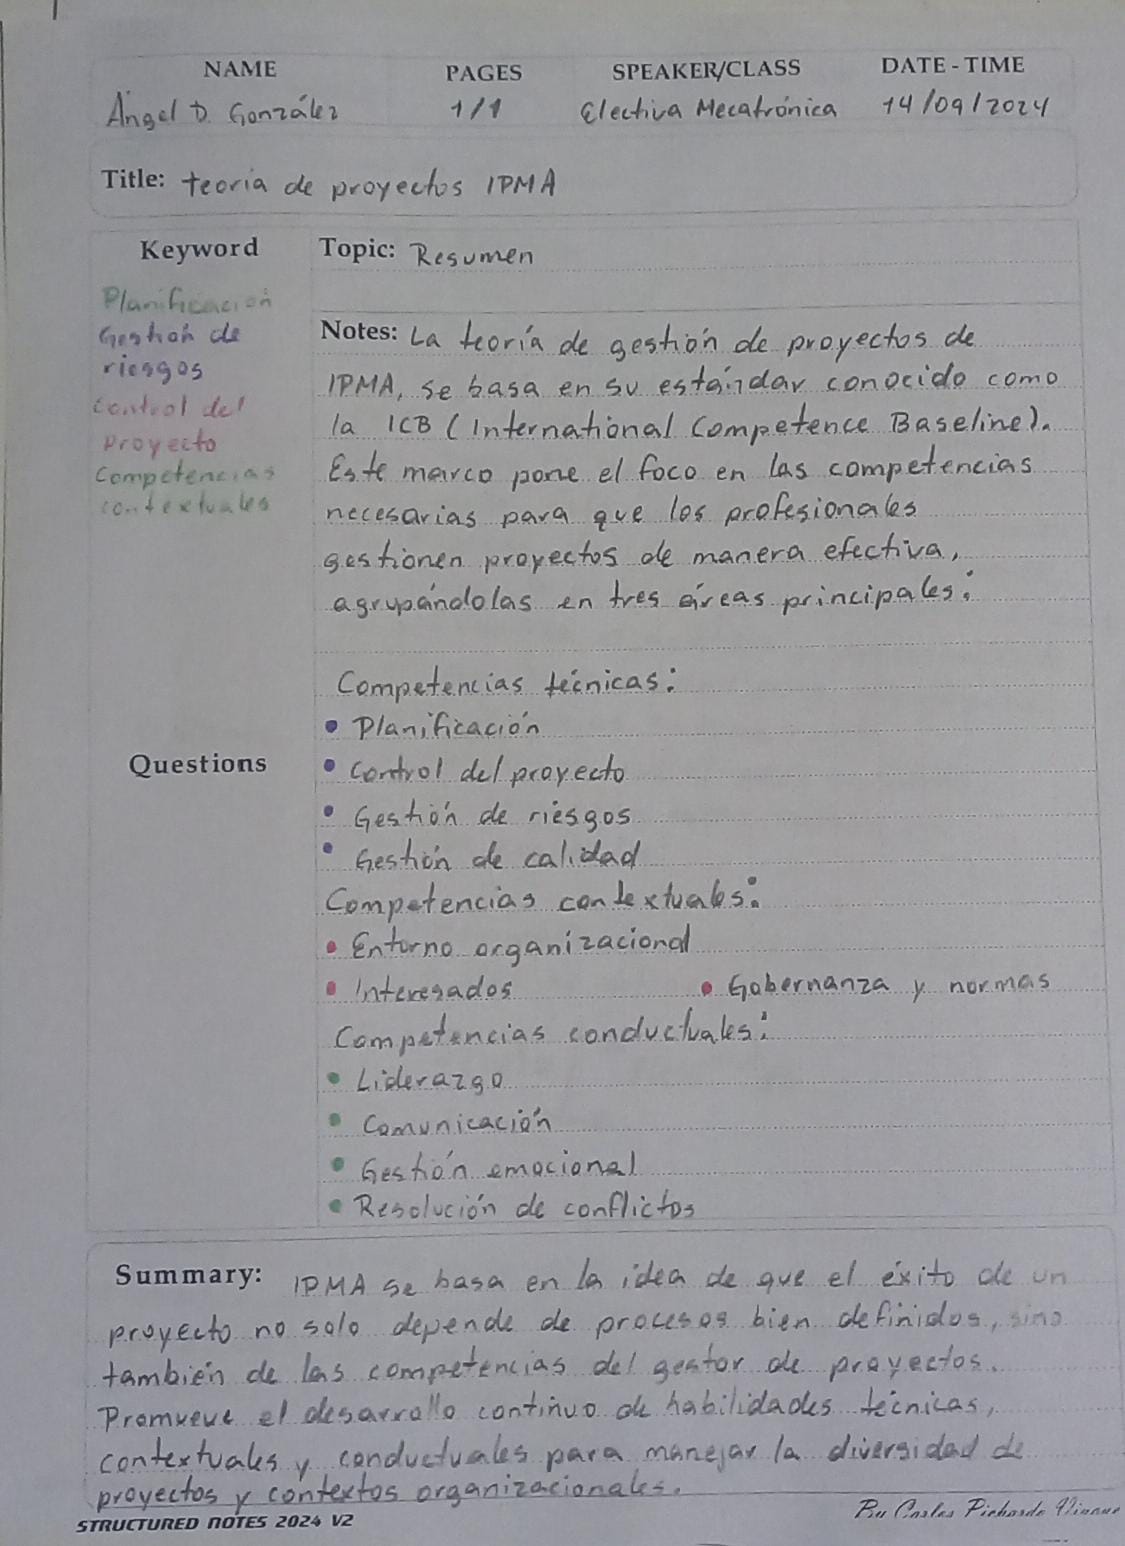 NAME PAGES SPEAKER/CLASS DATE-TIME
Ángel D. González 1/1 Electiva Mecatrónica 14/09/2024
Title: teoria de proyectos IPMA
Keyword
Planificación
Gestión de
riesgos
Control del
Proyecto
Competencias
contextuales
Questions
Topic: Resumen
Notes: La teoría de gestión de proyectos de
IPMA, se basa en su estándar conocido como
la ICB (International Competence Baseline).
Este marco pone el foco en las competencias
necesarias para que los profesionales
gestionen proyectos de manera efectiva,
agrupándolas en tres áreas principales:
Competencias técnicas:
• Planificación
• Control del proyecto
• Gestión de riesgos
• Gestión de calidad
Competencias contextuales:
• Entorno organizacional
• Interesados • Gobernanza y normas
Competencias conductuales:
• Liderazgo
• Comunicación
• Gestión emocional
• Resolución de conflictos
Summary: IPMA se basa en la idea de que el éxito de un
proyecto no solo depende de procesos bien definidos, sino
también de las competencias del gestor de proyectos.
Promueve el desarrollo continuo de habilidades técnicas,
contextuales y conductuales para manejar la diversidad de
proyectos y contextos organizacionales.
STRUCTURED NOTES 2024 V2 By Carlos Pichardo